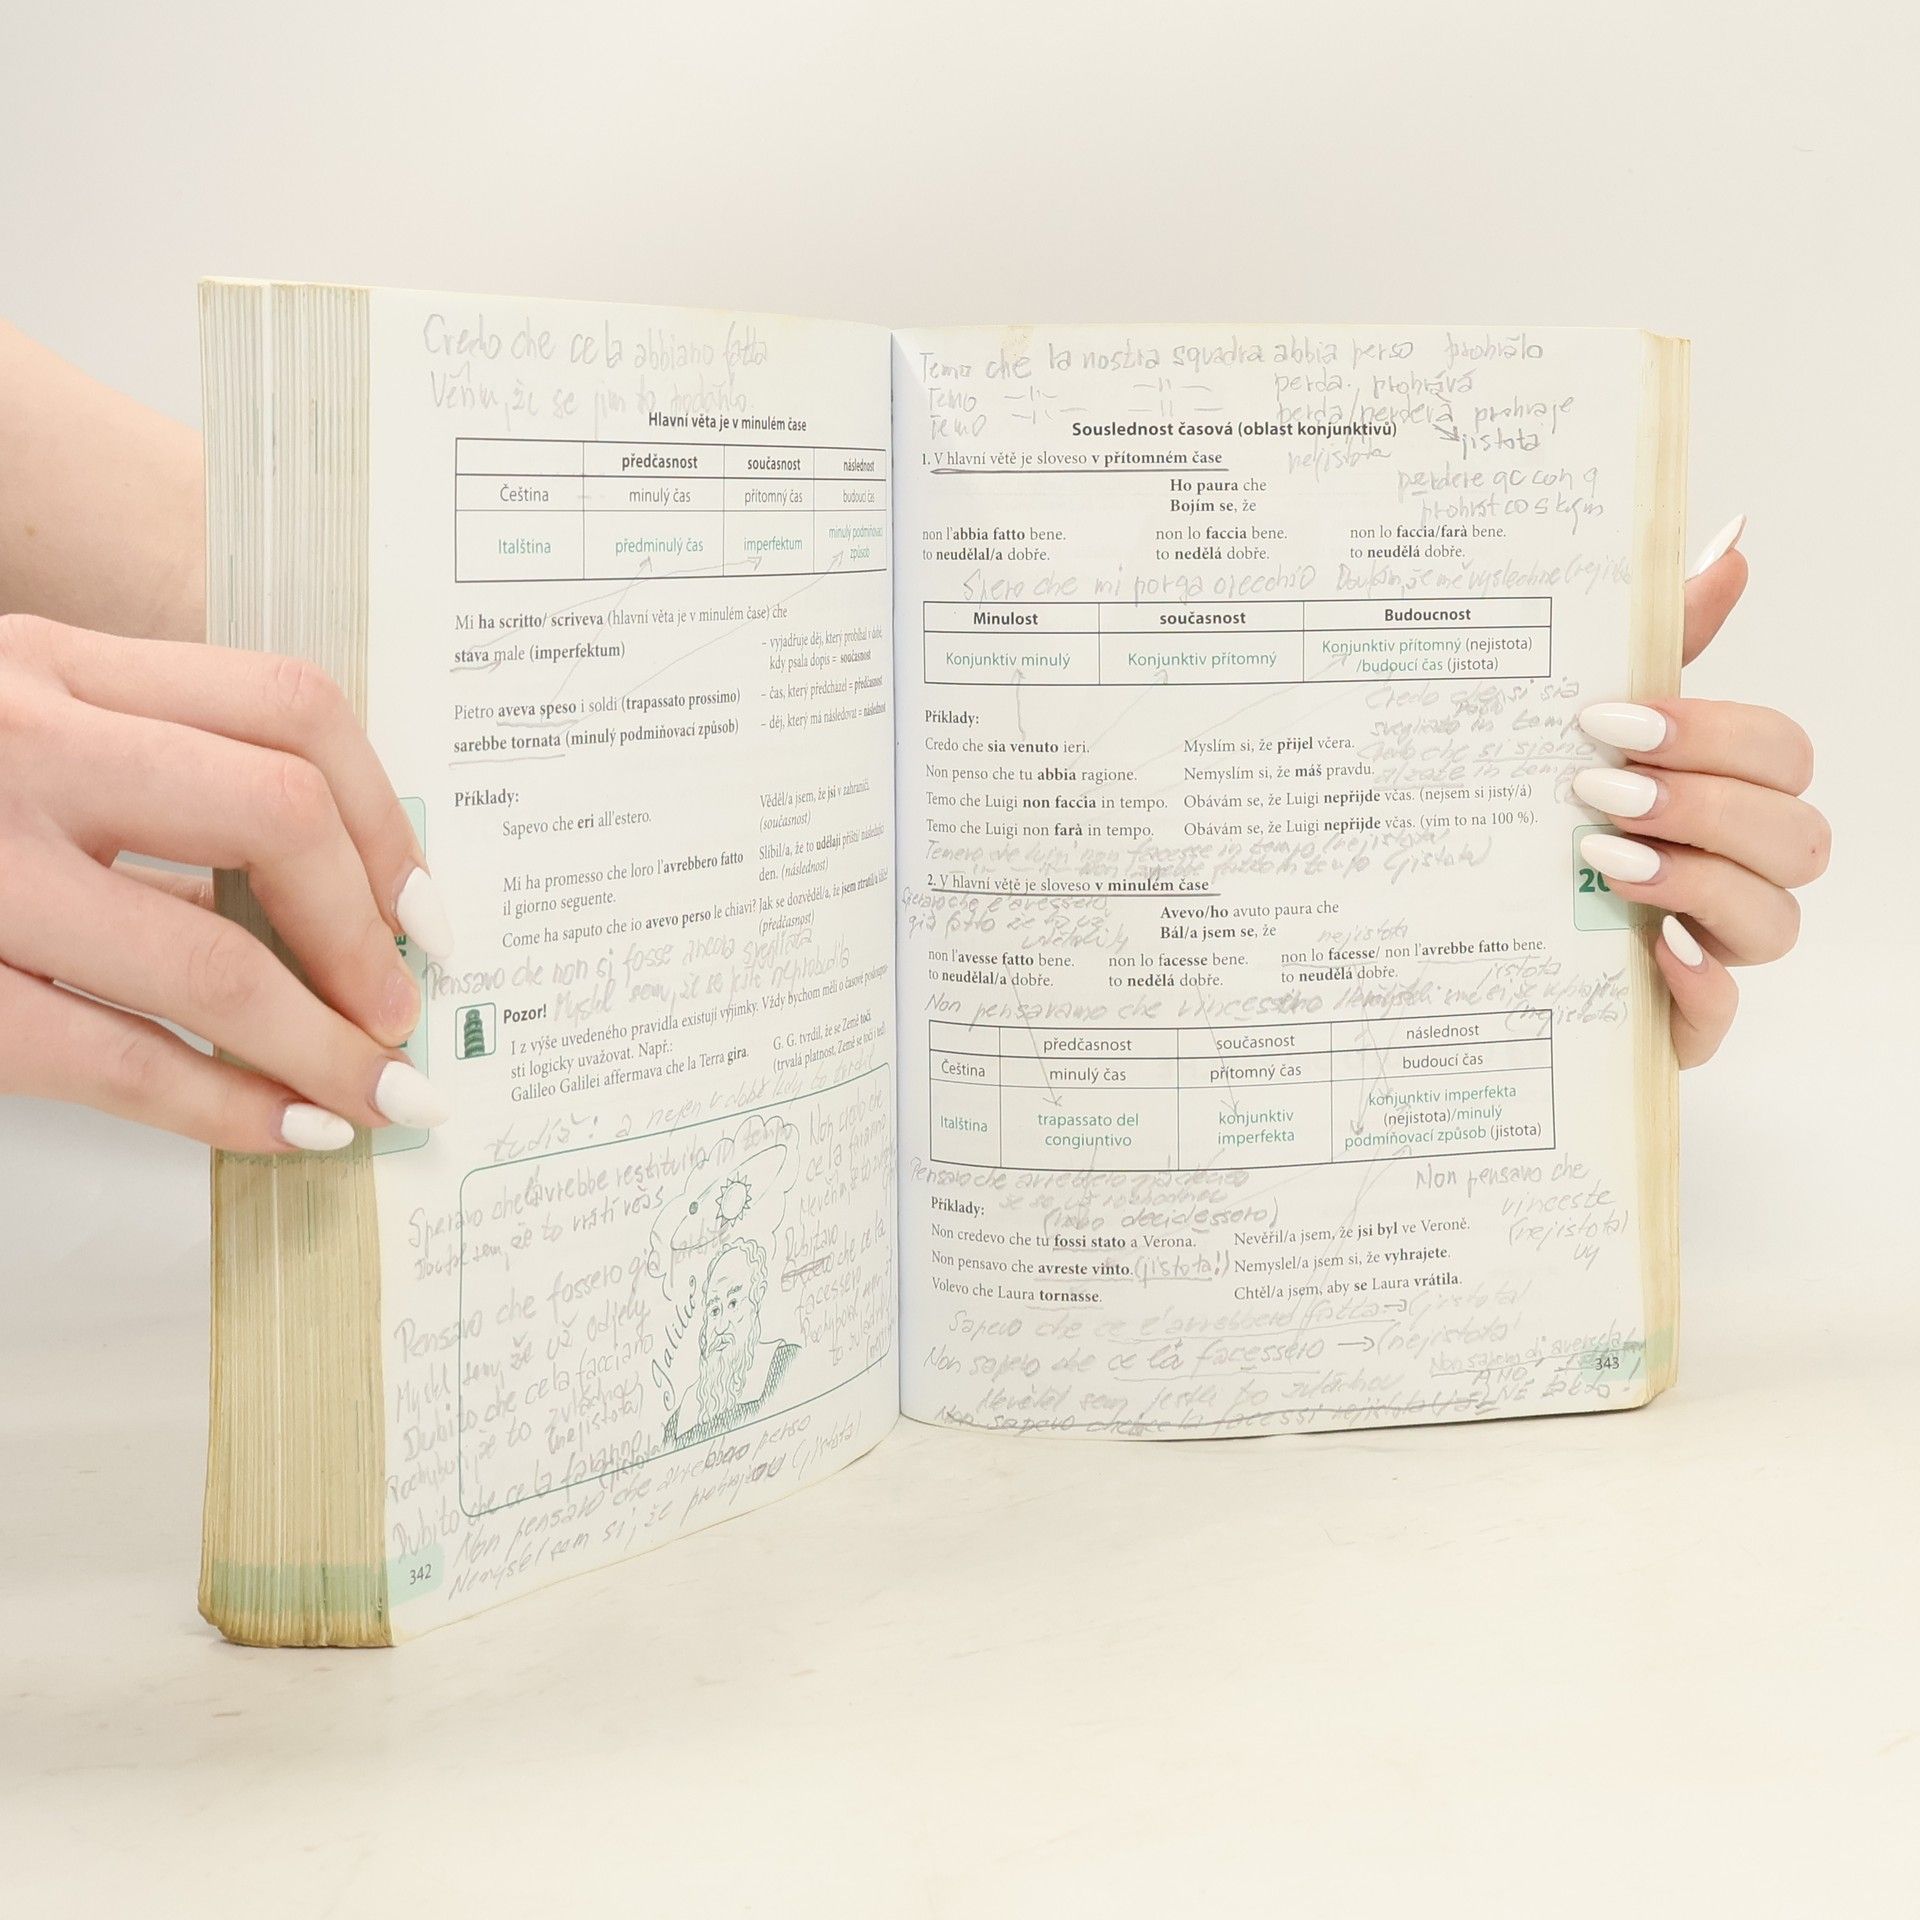 Credo che ce la abbiano fatta
Věřím, že se jim to podařilo.
Hlavní věta je v minulém čase
předčasnost současnost následnost
Čeština minulý čas přítomný čas budoucí čas
Italština předminulý čas imperfektum minulý podmiňovací způsob
Mi ha scritto/ scriveva (hlavní věta je v minulém čase) che
stava male (imperfektum) – vyjadřuje děj, který probíhal v době,
kdy psala dopis = současnost
Pietro aveva speso i soldi (trapassato prossimo) – čas, který předcházel = předčasnost
sarebbe tornata (minulý podmiňovací způsob) – děj, který má následovat = následnost
Příklady:
Sapevo che eri all'estero. Věděl/a jsem, že jsi v zahraničí.
(současnost)
Mi ha promesso che loro l'avrebbero fatto Slíbil/a, že to udělají příští následující
il giorno seguente. den. (následnost)
Come ha saputo che io avevo perso le chiavi? Jak se dozvěděl/a, že jsem ztratil/a klíče?
(předčasnost)
Pensavo che non si fosse ancora svegliata
Myslel sem, že se ještě neprobudila
Pozor!
I z výše uvedeného pravidla existují výjimky. Vždy bychom měli o časové posloupno-
sti logicky uvažovat. Např.:
Galileo Galilei affermava che la Terra gira. G. G. tvrdil, že se Země točí.
(trvalá platnost, Země se točí i teď)
a nejen v době kdy to tvrdil
Speravo che l'avrebbe restituito in tempo
Doufal sem, že to vrátí včas
Non credo che
ce la faranno
Pensavo che fossero già partite
Myslel sem, že už odjely
Dubito che ce la facciano
Pochybuji, že to zvládnou
(nejistota)
Dubito che ce la faranno
Dubitavo
che ce la
facessero
Galileo
Non pensavo che avrebbero perso
Nemyslel sem si, že prohrajou (jistota)
342
Temo che la nostra squadra abbia perso prohrálo
Temo perda, prohrává
Temo perda/perderà prohraje
nejistota jistota
perdere qc con q
prohrát co s kým
Souslednost časová (oblast konjunktivů)
1. V hlavní větě je sloveso v přítomném čase
Ho paura che
Bojím se, že
non l'abbia fatto bene. non lo faccia bene. non lo faccia/farà bene.
to neudělal/a dobře. to nedělá dobře. to neudělá dobře.
Spero che mi porga orecchio Doufám, že mě vyslechne
Minulost současnost Budoucnost
Konjunktiv minulý Konjunktiv přítomný Konjunktiv přítomný (nejistota)
/budoucí čas (jistota)
Příklady:
Credo che sia venuto ieri. Myslím si, že přijel včera.
Non penso che tu abbia ragione. Nemyslím si, že máš pravdu.
Temo che Luigi non faccia in tempo. Obávám se, že Luigi nepřijde včas. (nejsem si jistý/á)
Temo che Luigi non farà in tempo. Obávám se, že Luigi nepřijde včas. (vím to na 100 %).
Temevo che Luigi non facesse in tempo (nejistota)
2. V hlavní větě je sloveso v minulém čase
Avevo/ho avuto paura che
Bál/a jsem se, že
nejistota
non l'avesse fatto bene. non lo facesse bene. non lo facesse/ non l'avrebbe fatto bene.
to neudělal/a dobře. to nedělá dobře. to neudělá dobře.
jistota
Non pensavamo che vincessimo
(nejistota)
předčasnost současnost následnost
Čeština minulý čas přítomný čas budoucí čas
Italština trapassato del congiuntivo konjunktiv imperfekta konjunktiv imperfekta (nejistota)/minulý podmiňovací způsob (jistota)
Pensavo che
(nebo decidessero)
Non pensavo che
vinceste
(nejistota)
vy
Příklady:
Non credevo che tu fossi stato a Verona. Nevěřil/a jsem, že jsi byl ve Veroně.
Non pensavo che avreste vinto. (jistota!) Nemyslel/a jsem si, že vyhrajete.
Volevo che Laura tornasse. Chtěl/a jsem, aby se Laura vrátila.
Sapevo che ce l'avrebbero fatta → (jistota)
Non sapevo che ce la facessero → (nejistota)
Nevěděl sem jestli to zvládnou
20
343